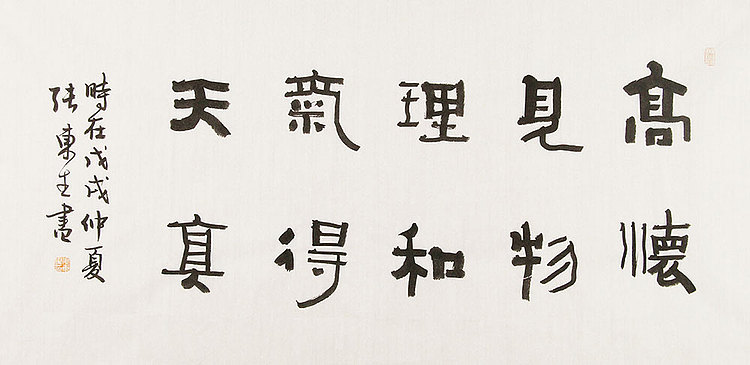 高懷
見物
理和
氣得
天真
時在戊戌仲夏
張東生書